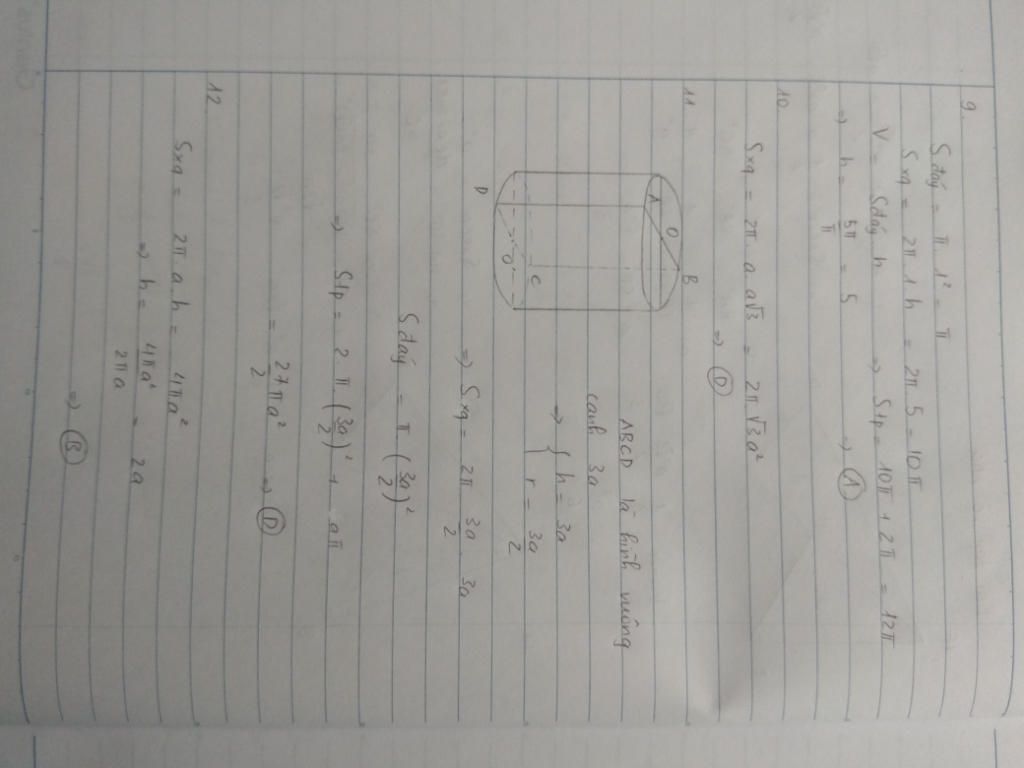 9.
S đáy = π . 1² = π
Sxq = 2π 1 h = 2π 5 = 10π
V = S đáy h ⇒ Stp = 10π + 2π = 12π
⇒ h = 5π/π = 5 ⇒ Ⓐ
10
Sxq = 2π a a√3 = 2π√3a²
⇒ Ⓓ
11
A O B
D O' C
ABCD là hình vuông
cạnh 3a
⇒ { h = 3a
r = 3a/2
⇒ Sxq = 2π 3a/2 3a
S đáy = π (3a/2)²
⇒ Stp = 2 π (3a/2)² + aπ
= 27πa²/2 ⇒ Ⓓ
12.
Sxq = 2π a h = 4πa²
⇒ h = 4πa²/2πa = 2a
⇒ Ⓑ